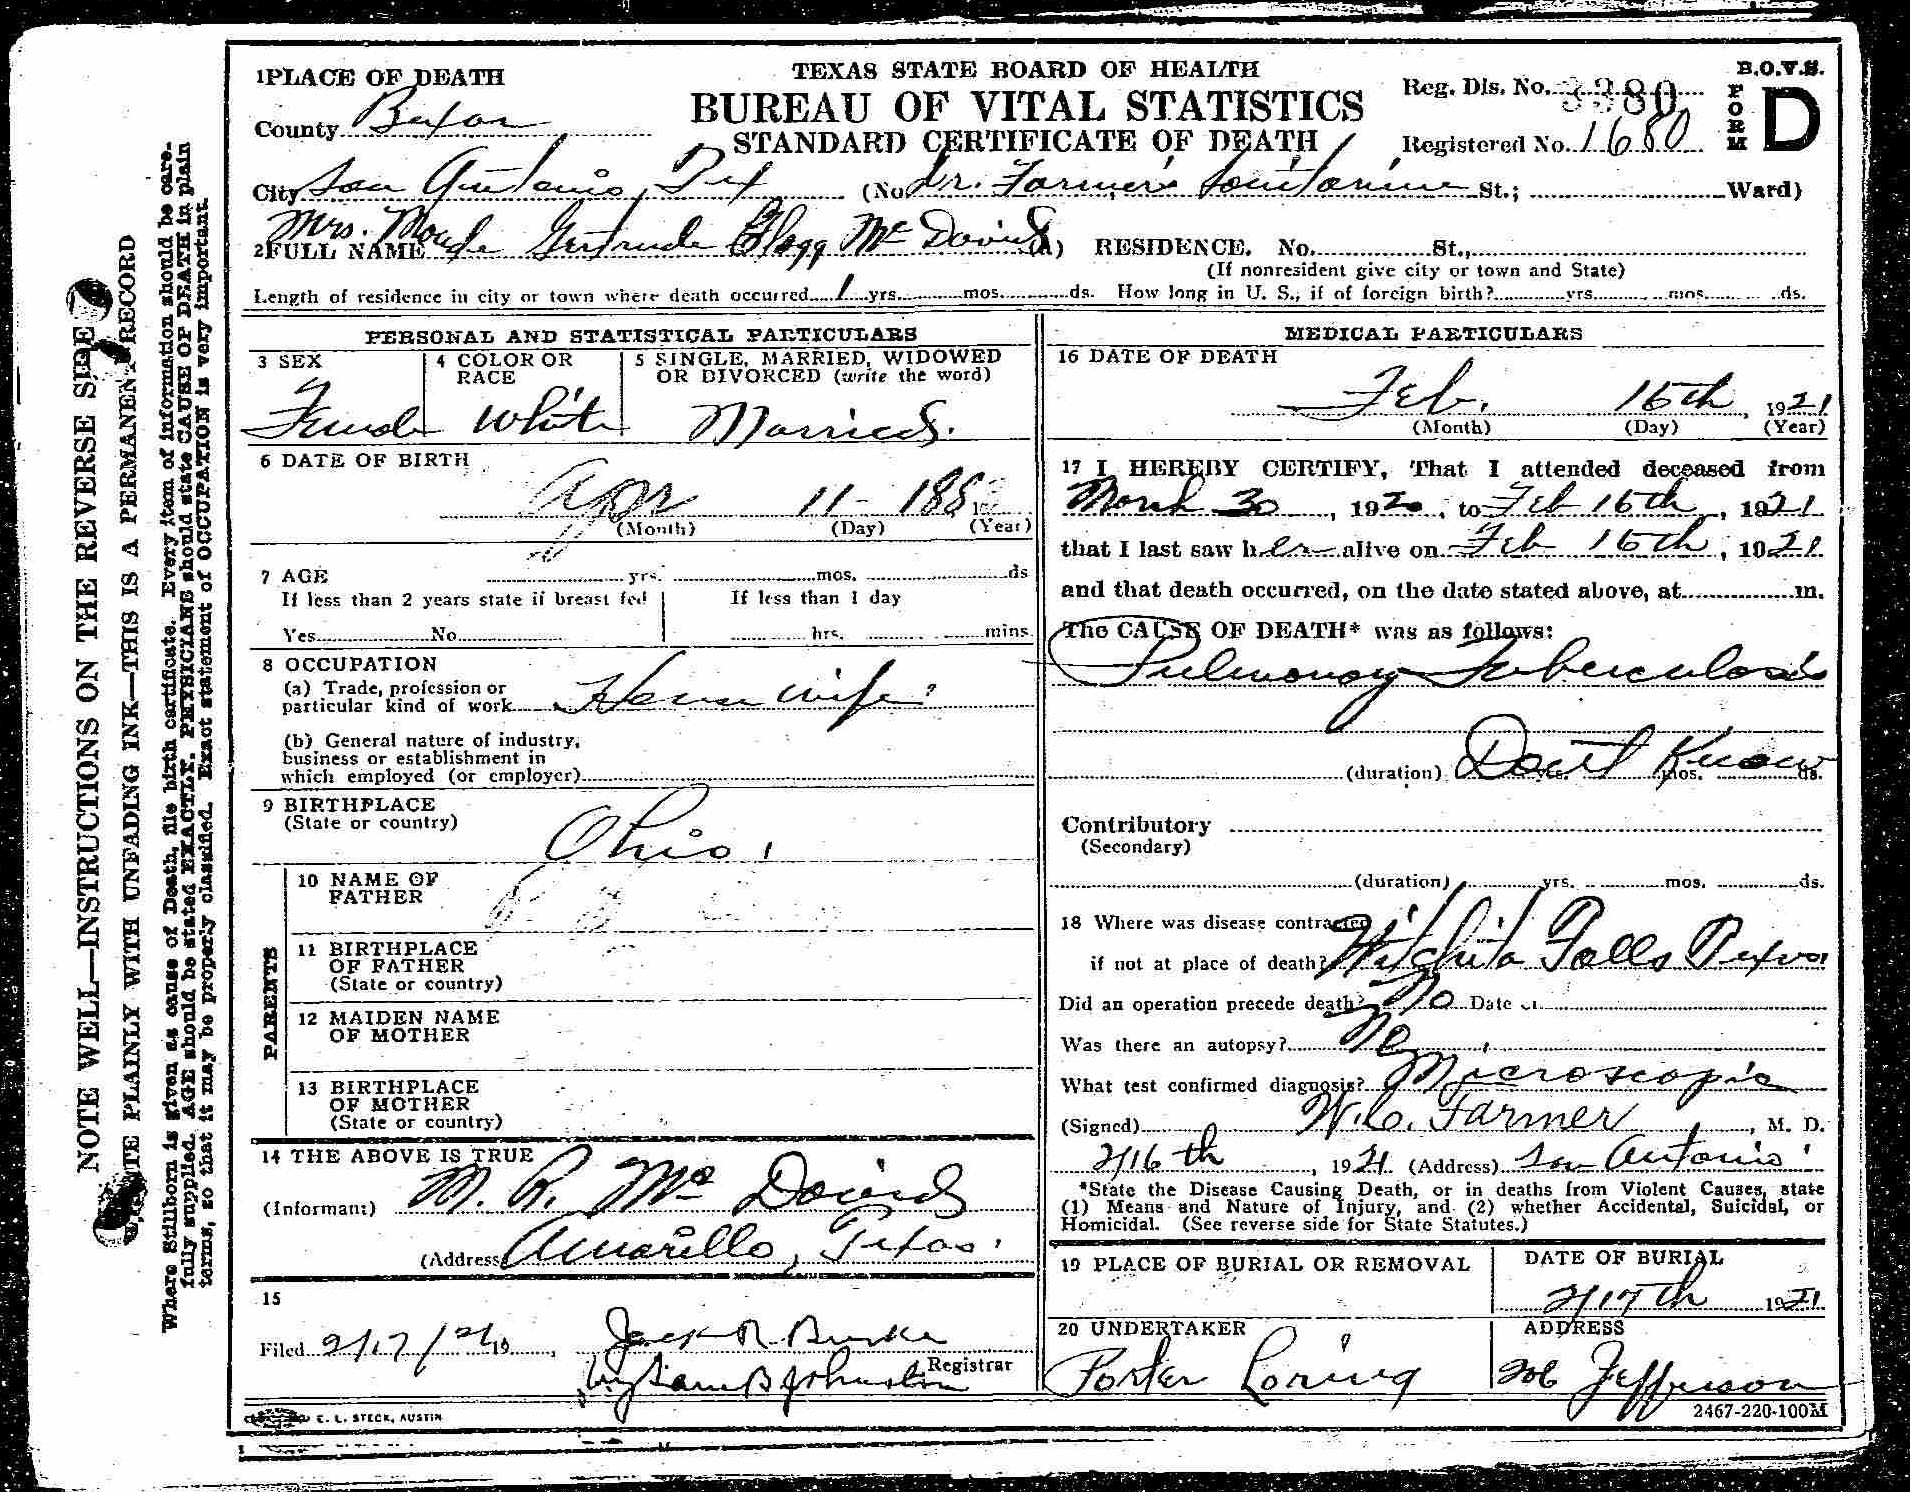 1 PLACE OF DEATH
TEXAS STATE BOARD OF HEALTH
BUREAU OF VITAL STATISTICS
STANDARD CERTIFICATE OF DEATH
Reg. Dis. No. 3380
Registered No. 1680
B.O.V.S.
FORM D
County Bexar
City San Antonio, Tex (No. Dr. Farmer's Sanitarium St.; Ward)
2 FULL NAME Mrs. Maude Gertrude Clogg McDavid (A) RESIDENCE. No. St.,
(If nonresident give city or town and State)
Length of residence in city or town where death occurred 1 yrs. mos. ds. How long in U. S., if of foreign birth? yrs. mos. ds.
PERSONAL AND STATISTICAL PARTICULARS
3 SEX
Female
4 COLOR OR RACE
White
5 SINGLE, MARRIED, WIDOWED
OR DIVORCED (write the word)
Married.
6 DATE OF BIRTH
Apr 11 - 188
(Month) (Day) (Year)
7 AGE yrs. mos. ds
If less than 2 years state if breast fed
Yes No
If less than 1 day
hrs. mins.
8 OCCUPATION
(a) Trade, profession or
particular kind of work House wife
(b) General nature of industry,
business or establishment in
which employed (or employer)
9 BIRTHPLACE
(State or country)
Ohio
PARENTS
10 NAME OF
FATHER
11 BIRTHPLACE
OF FATHER
(State or country)
12 MAIDEN NAME
OF MOTHER
13 BIRTHPLACE
OF MOTHER
(State or country)
14 THE ABOVE IS TRUE
(Informant) M. R. McDavid
(Address) Amarillo, Texas.
15
Filed 2/17/21 19 , Jack R Burke
by Sam B Johnston Registrar
E. L. STECK, AUSTIN
MEDICAL PARTICULARS
16 DATE OF DEATH
Feb. 16th, 1921
(Month) (Day) (Year)
17 I HEREBY CERTIFY, That I attended deceased from
March 30, 1920, to Feb 16th, 1921
that I last saw her alive on Feb 16th, 1921
and that death occurred, on the date stated above, at m.
The CAUSE OF DEATH* was as follows:
Pulmonary Tuberculosis
(duration) Don't Know yrs. mos. ds.
Contributory
(Secondary)
(duration) yrs. mos. ds.
18 Where was disease contracted
if not at place of death? Wichita Falls Texas
Did an operation precede death? No Date of
Was there an autopsy? No
What test confirmed diagnosis? Microscopic
(Signed) W.C. Farmer, M. D.
2/16th, 1921. (Address) San Antonio
*State the Disease Causing Death, or in deaths from Violent Causes, state
(1) Means and Nature of Injury, and (2) whether Accidental, Suicidal, or
Homicidal. (See reverse side for State Statutes.)
19 PLACE OF BURIAL OR REMOVAL
DATE OF BURIAL
2/17th 1921
20 UNDERTAKER
Porter Loring
ADDRESS
206 Jefferson
2467-220-100M
NOTE WELL—INSTRUCTIONS ON THE REVERSE SIDE
WRITE PLAINLY WITH UNFADING INK—THIS IS A PERMANENT RECORD
Where Stillborn is given as cause of Death, file birth certificate. Every item of information should be care-
fully supplied. AGE should be stated EXACTLY. PHYSICIANS should state CAUSE OF DEATH in plain
terms, so that it may be properly classified. Exact statement of OCCUPATION is very important.